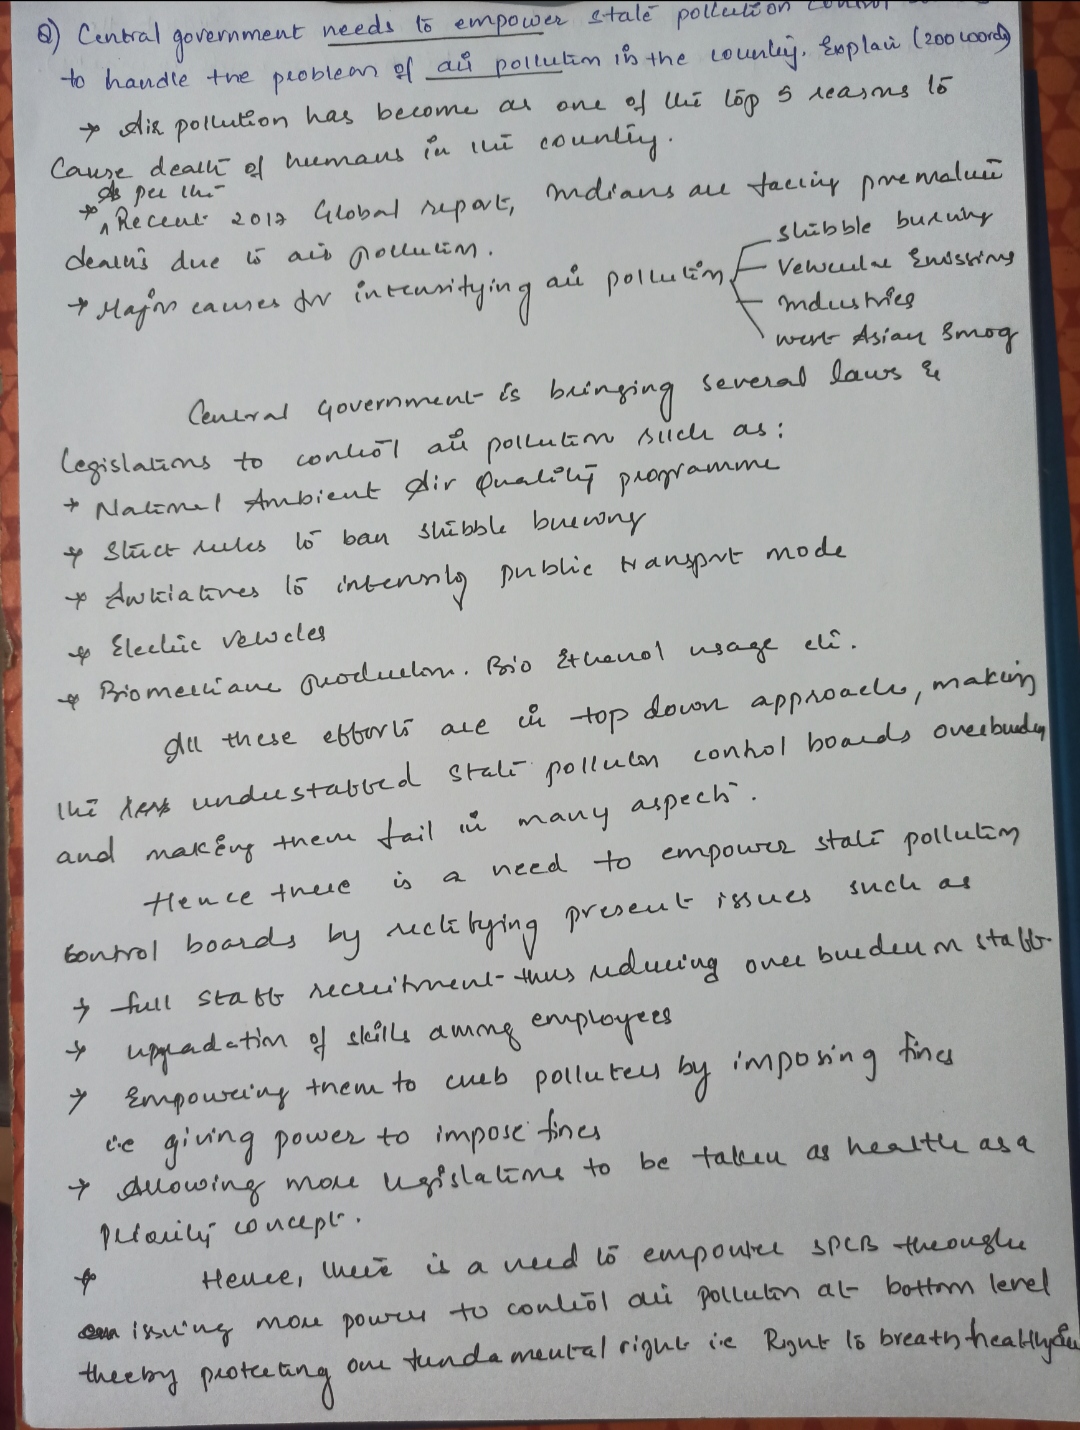 Q) Central government needs to empower state pollution control
to handle the problem of air pollution in the country. Explain (200 words)
→ Air pollution has become as one of the top 5 reasons to
Cause death of humans in the country.
As per the
→ ^ Recent 2017 Global report, Indians are facing premature
deaths due to air pollution.
→ Major causes for intensifying air pollution
stubble burning
Vehicular Emissions
Industries
West Asian Smog
Central Government is bringing several laws &
legislations to control air pollution such as:
→ National Ambient Air Quality programme
→ Strict rules to ban stubble burning
→ Initiatives to intensify public transport mode
→ Electric Vehicles
→ Biomethane production. Bio Ethanol usage etc.
All these efforts are in top down approach, making
the understaffed State pollution control boards overburden
and making them fail in many aspects.
Hence there is a need to empower state pollution
control boards by rectifying present issues such as
→ full staff recruitment thus reducing over burden on staff
→ upgradation of skills among employees
→ Empowering them to curb polluters by imposing fines
i.e giving power to impose fines
→ Allowing more legislations to be taken as health as a
Priority concept.
→ Hence, there is a need to empower SPCB through
issuing more power to control air pollution at bottom level
thereby protecting our fundamental right i.e Right to breath healthy air